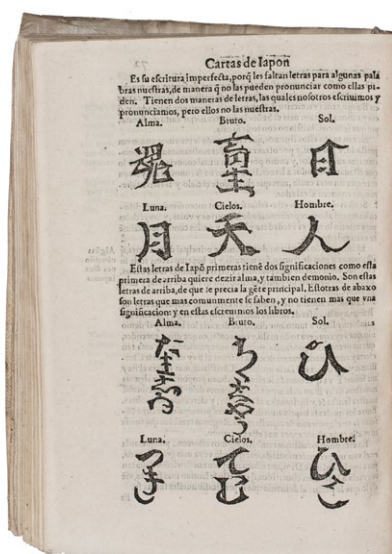 Cartas de Iapon
Es su escritura imperfecta, porq̃ les faltan letras para algunas pala
bras nuestras, de manera q̃ no las pueden pronunciar como ellas pi-
den. Tienen dos maneras de letras, las quales nosotros escriuimos y
pronunciamos, pero ellos no las nuestras.
Alma. Bruto. Sol.
魂 畜生 日
Luna. Cielos. Hombre.
月 天 人
Estas letras de Iapõ primeras tienẽ dos significaciones como esta
primera de arriba quiere dezir alma, y tambien demonio. Son estas
letras de arriba, de que se precia la gẽte principal. Estotras de abaxo
son letras que mas comunmente se saben, y no tienen mas que vna
significacion: y en estas escreuimos los libros.
Alma. Bruto. Sol.
たましゐ ちくしやう ひ
Luna. Cielos. Hombre.
つき てむ ひと